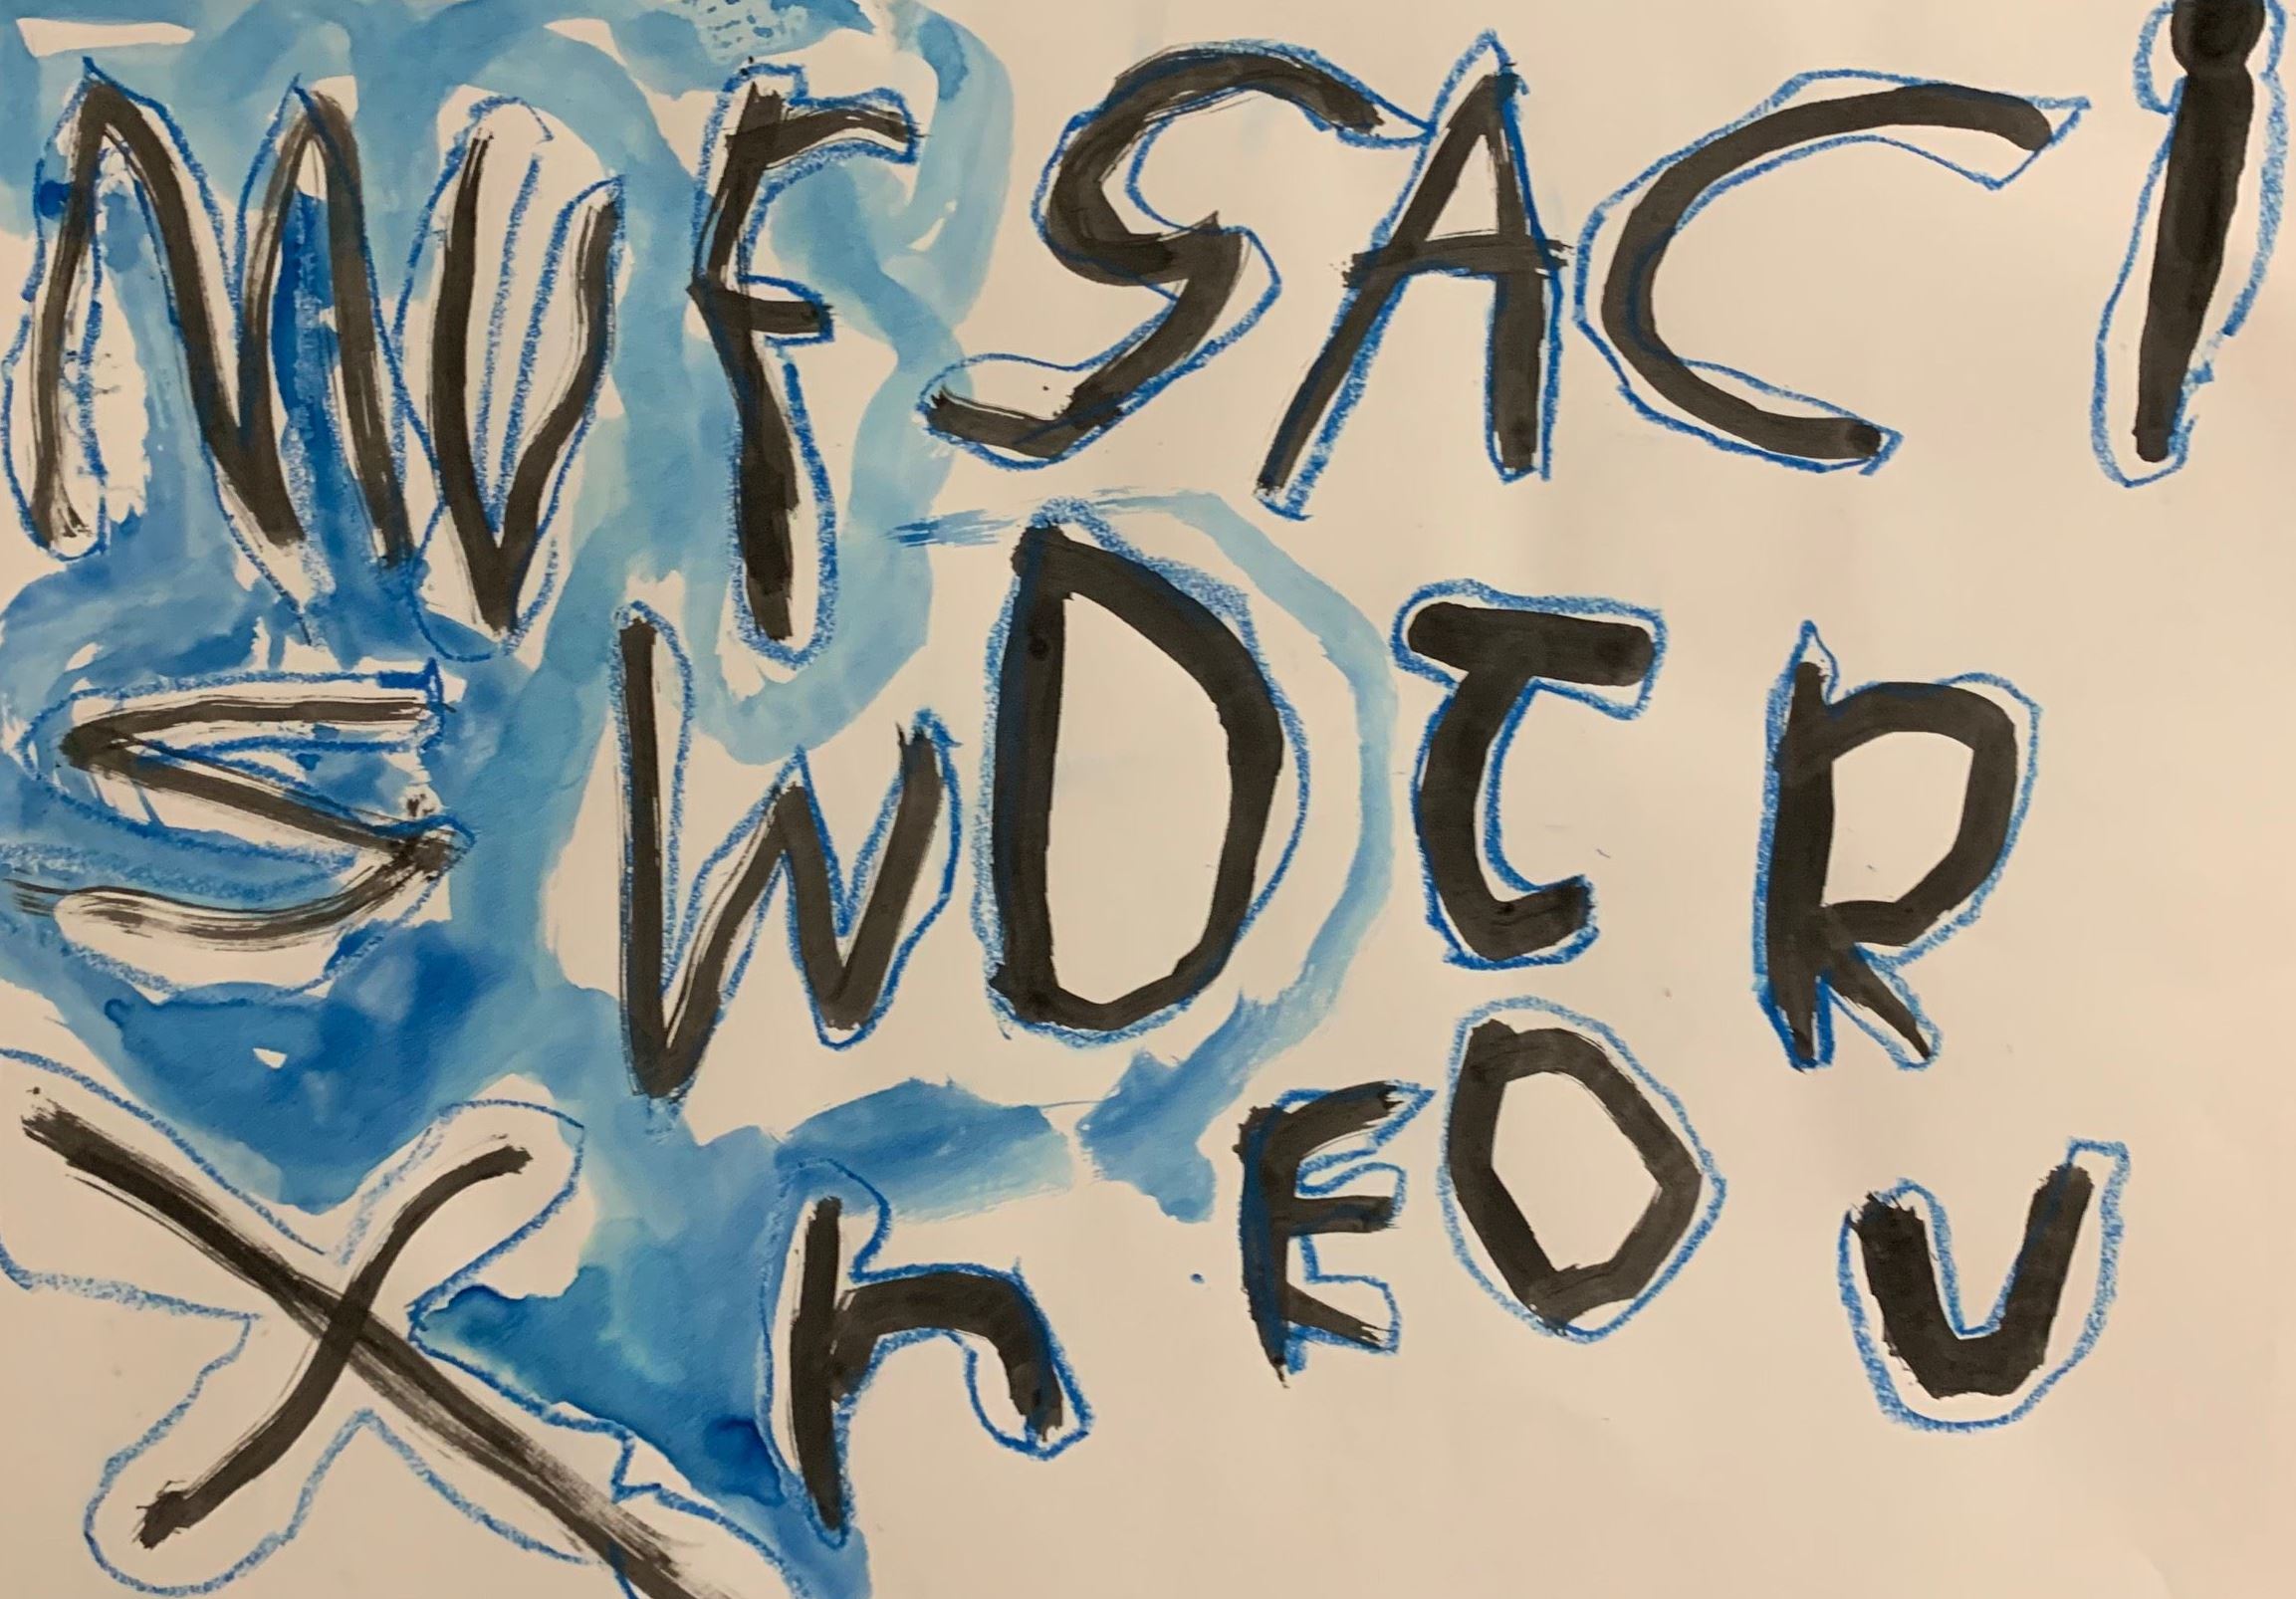 MVFSACI
SWDTR
XhEOU